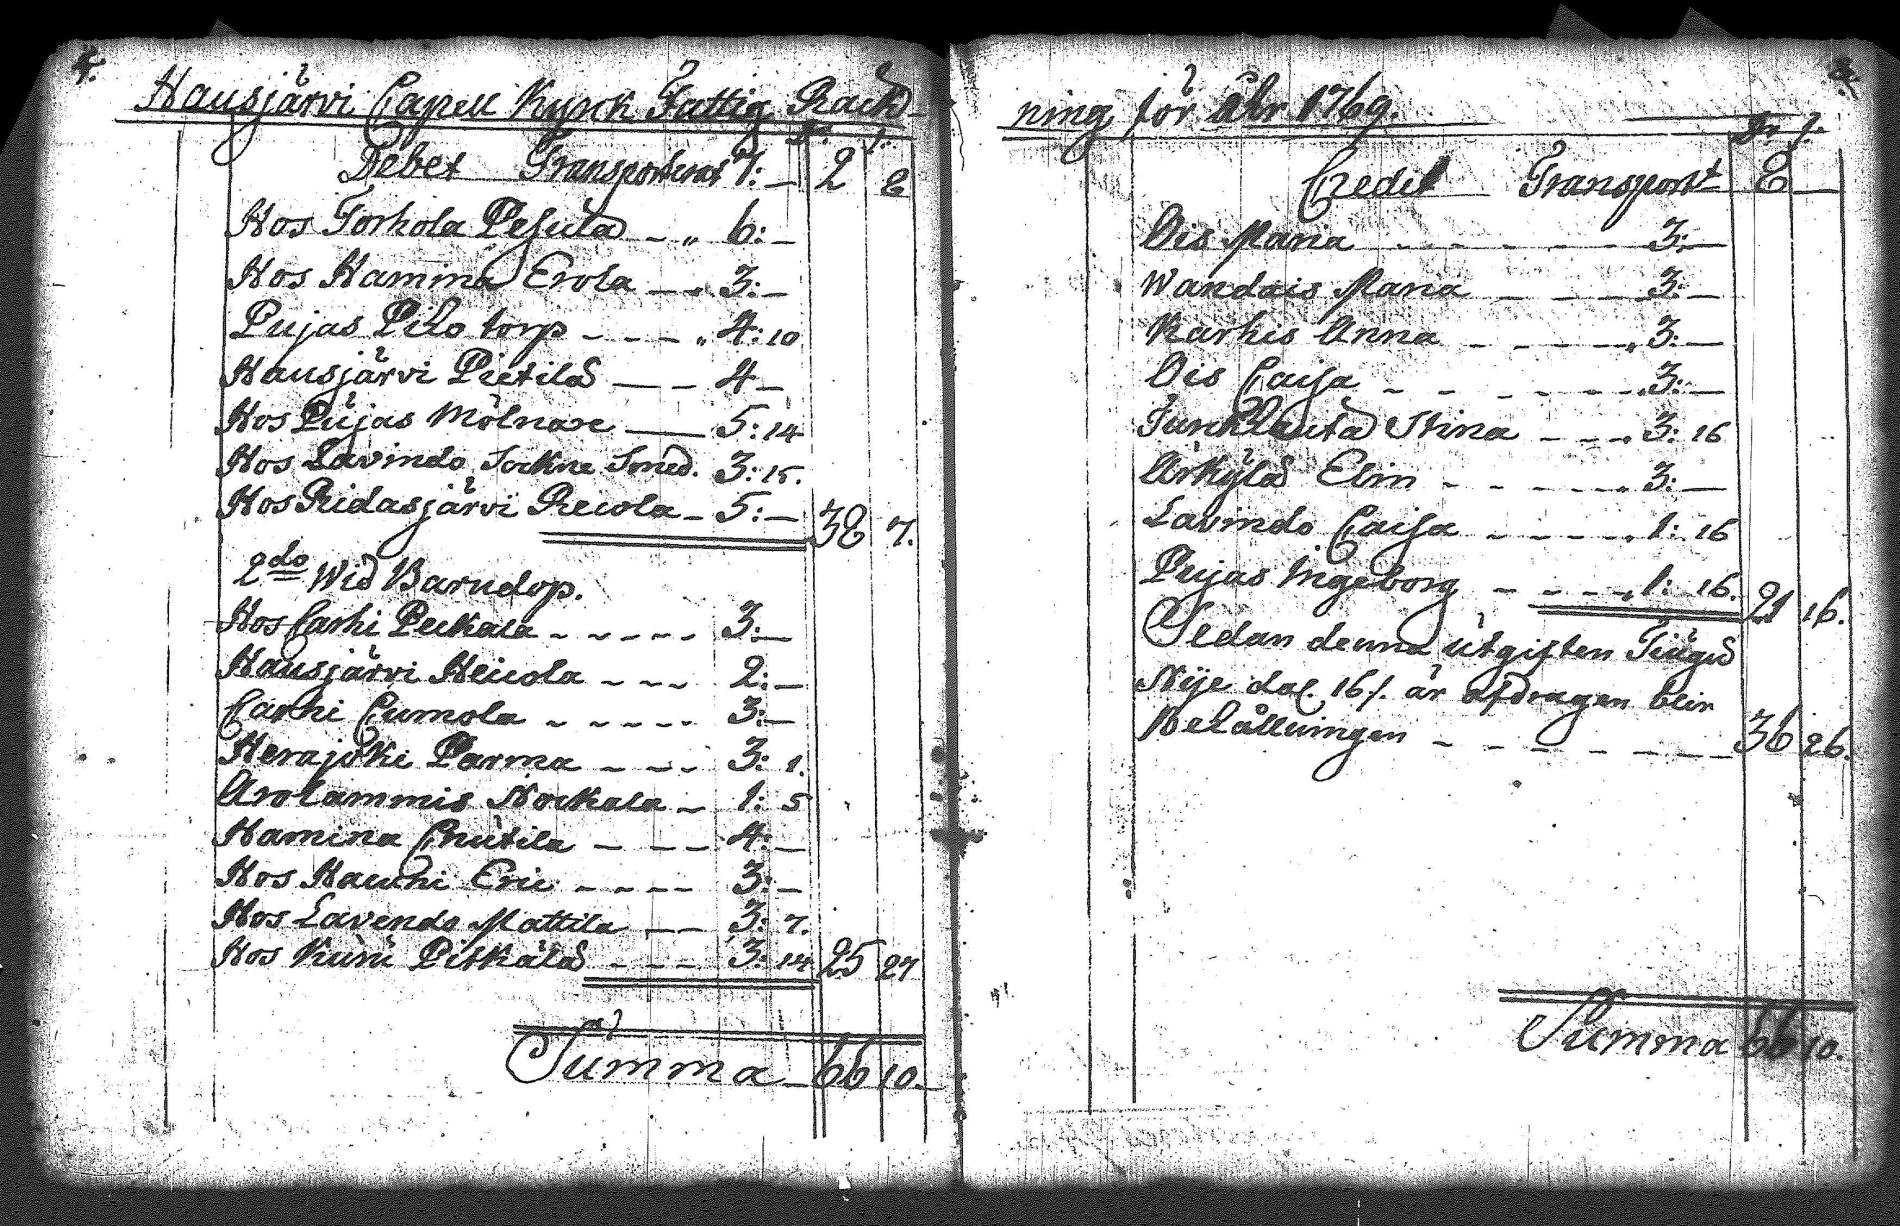 4.
Hausjärvi Capell Kyrck Fattig Räck-
D. f.
Debet Transporterat 7:— 2 8
Hos Torhola Pesula — „ 6:—
Hos Hamina Erola — „ 3:—
Pujas Pilo torp - - - „ 4:10
Hausjärvi Pietilas — — 4—
Hos Pujas Mölnare — 5:14
Hos Lavindo Sockne Smed. 3:15.
Hos Ridasjärvi Reicola — 5:— 38 7.
2do Wid Barndop.
Hos Carhi Peckala - - - - - 3:—
Hausjärvi Heicola - - - 2:—
Carhi Cumola - - - - - 3:—
Herajoki Parma - - - - 3: 1.
Arolammis Nockala - 1: 5
Hamina Cnutila - - - - 4:—
Hos Hauhi Eric - - - - 3:—
Hos Lavendo Mattila - - - 3: 7.
Hos Kuru Pitkälä - - - - 3: 14 25 27
Summa 66 10.
ning för åhr 1769.
D. f.
Credit Transport 8 —
Ois Maria - - - - - - 3:—
Wandais Maria - - - - 3:—
Karhis Anna - - - - - „ 3:—
Ois Caisa - - - - - - „ 3:—
Stina - - - „ 3: 16
Arkyläs Elin - - - - - „ 3:—
Lavindo Caisa - - - - - „ 1: 16
Pujas Ingeborg - - - - „ 1: 16. 21 16.
Sedan denna utgiften Tiugu
Nije dal. 16 f. är afdragen blir
Behållningen - - - - - - - 36 26.
Summa 66 10.